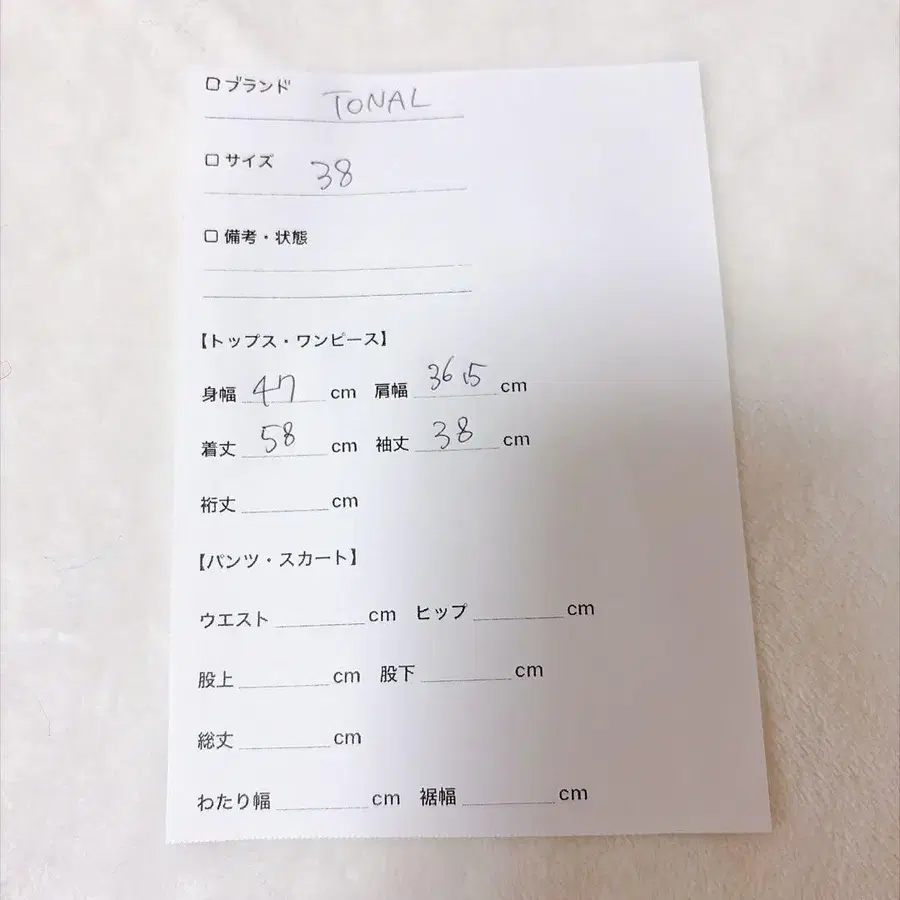 □ ブランド TONAL
□ サイズ 38
□ 備考・状態
【トップス・ワンピース】
身幅 47 cm 肩幅 36.5 cm
着丈 58 cm 袖丈 38 cm
裄丈 cm
【パンツ・スカート】
ウエスト cm ヒップ cm
股上 cm 股下 cm
総丈 cm
わたり幅 cm 裾幅 cm